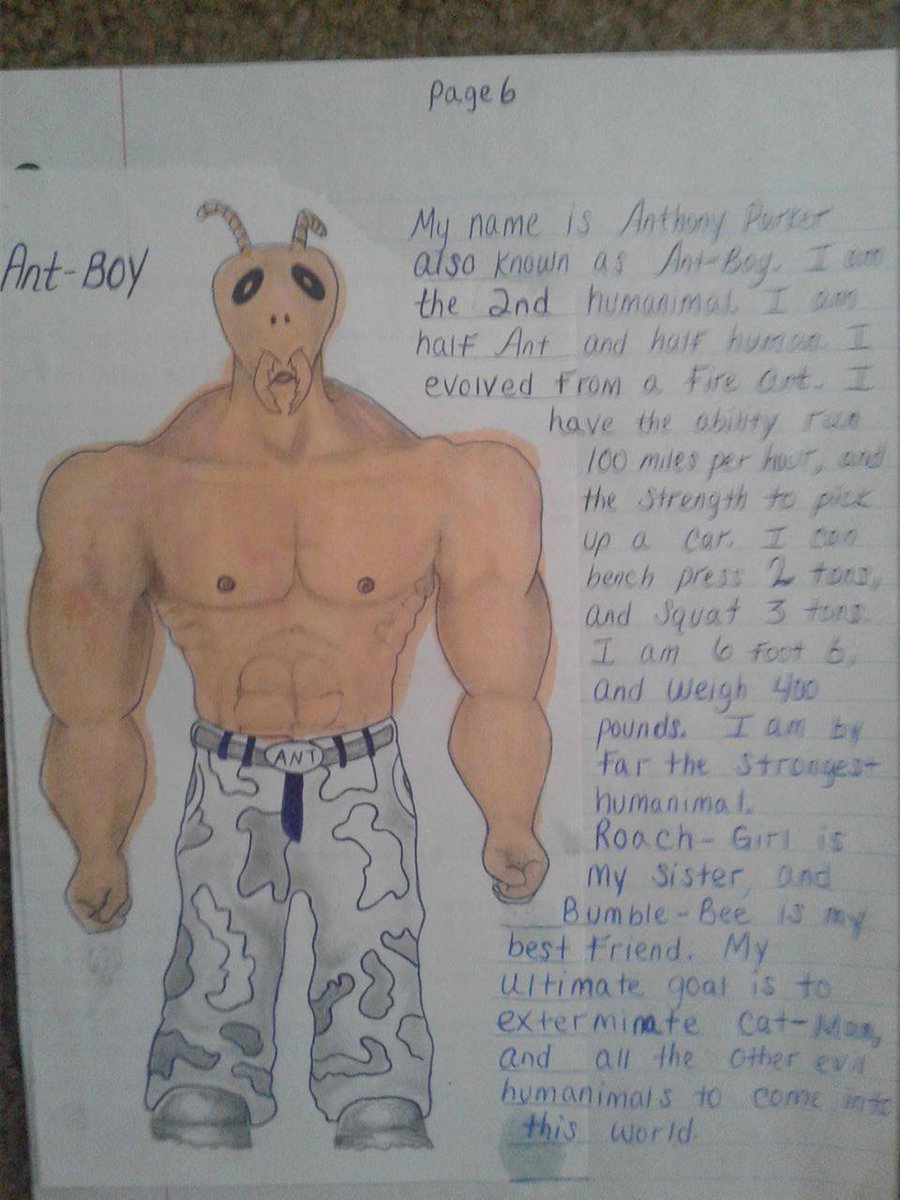 Page 6
Ant-Boy
My name is Anthony Parker
also known as Ant-Boy. I am
the 2nd humanimal. I am
half Ant and half human. I
evolved from a fire ant. I
have the ability run
100 miles per hour, and
the strength to pick
up a car. I can
bench press 2 tons,
and squat 3 tons.
I am 6 foot 6,
and weigh 400
pounds. I am by
far the strongest
humanimal.
Roach-Girl is
my sister, and
Bumble-Bee is my
best friend. My
ultimate goal is to
exterminate Cat-Man,
and all the other evil
humanimals to come into
this world
ANT